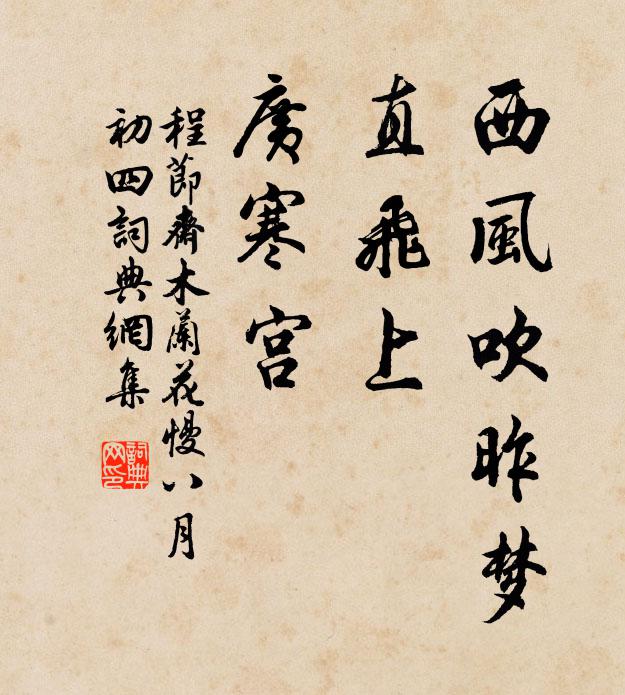 西風吹昨梦
直飛上
廣寒宫
程節齋木蘭花慢八月
初四詞典網集
詞典
网印